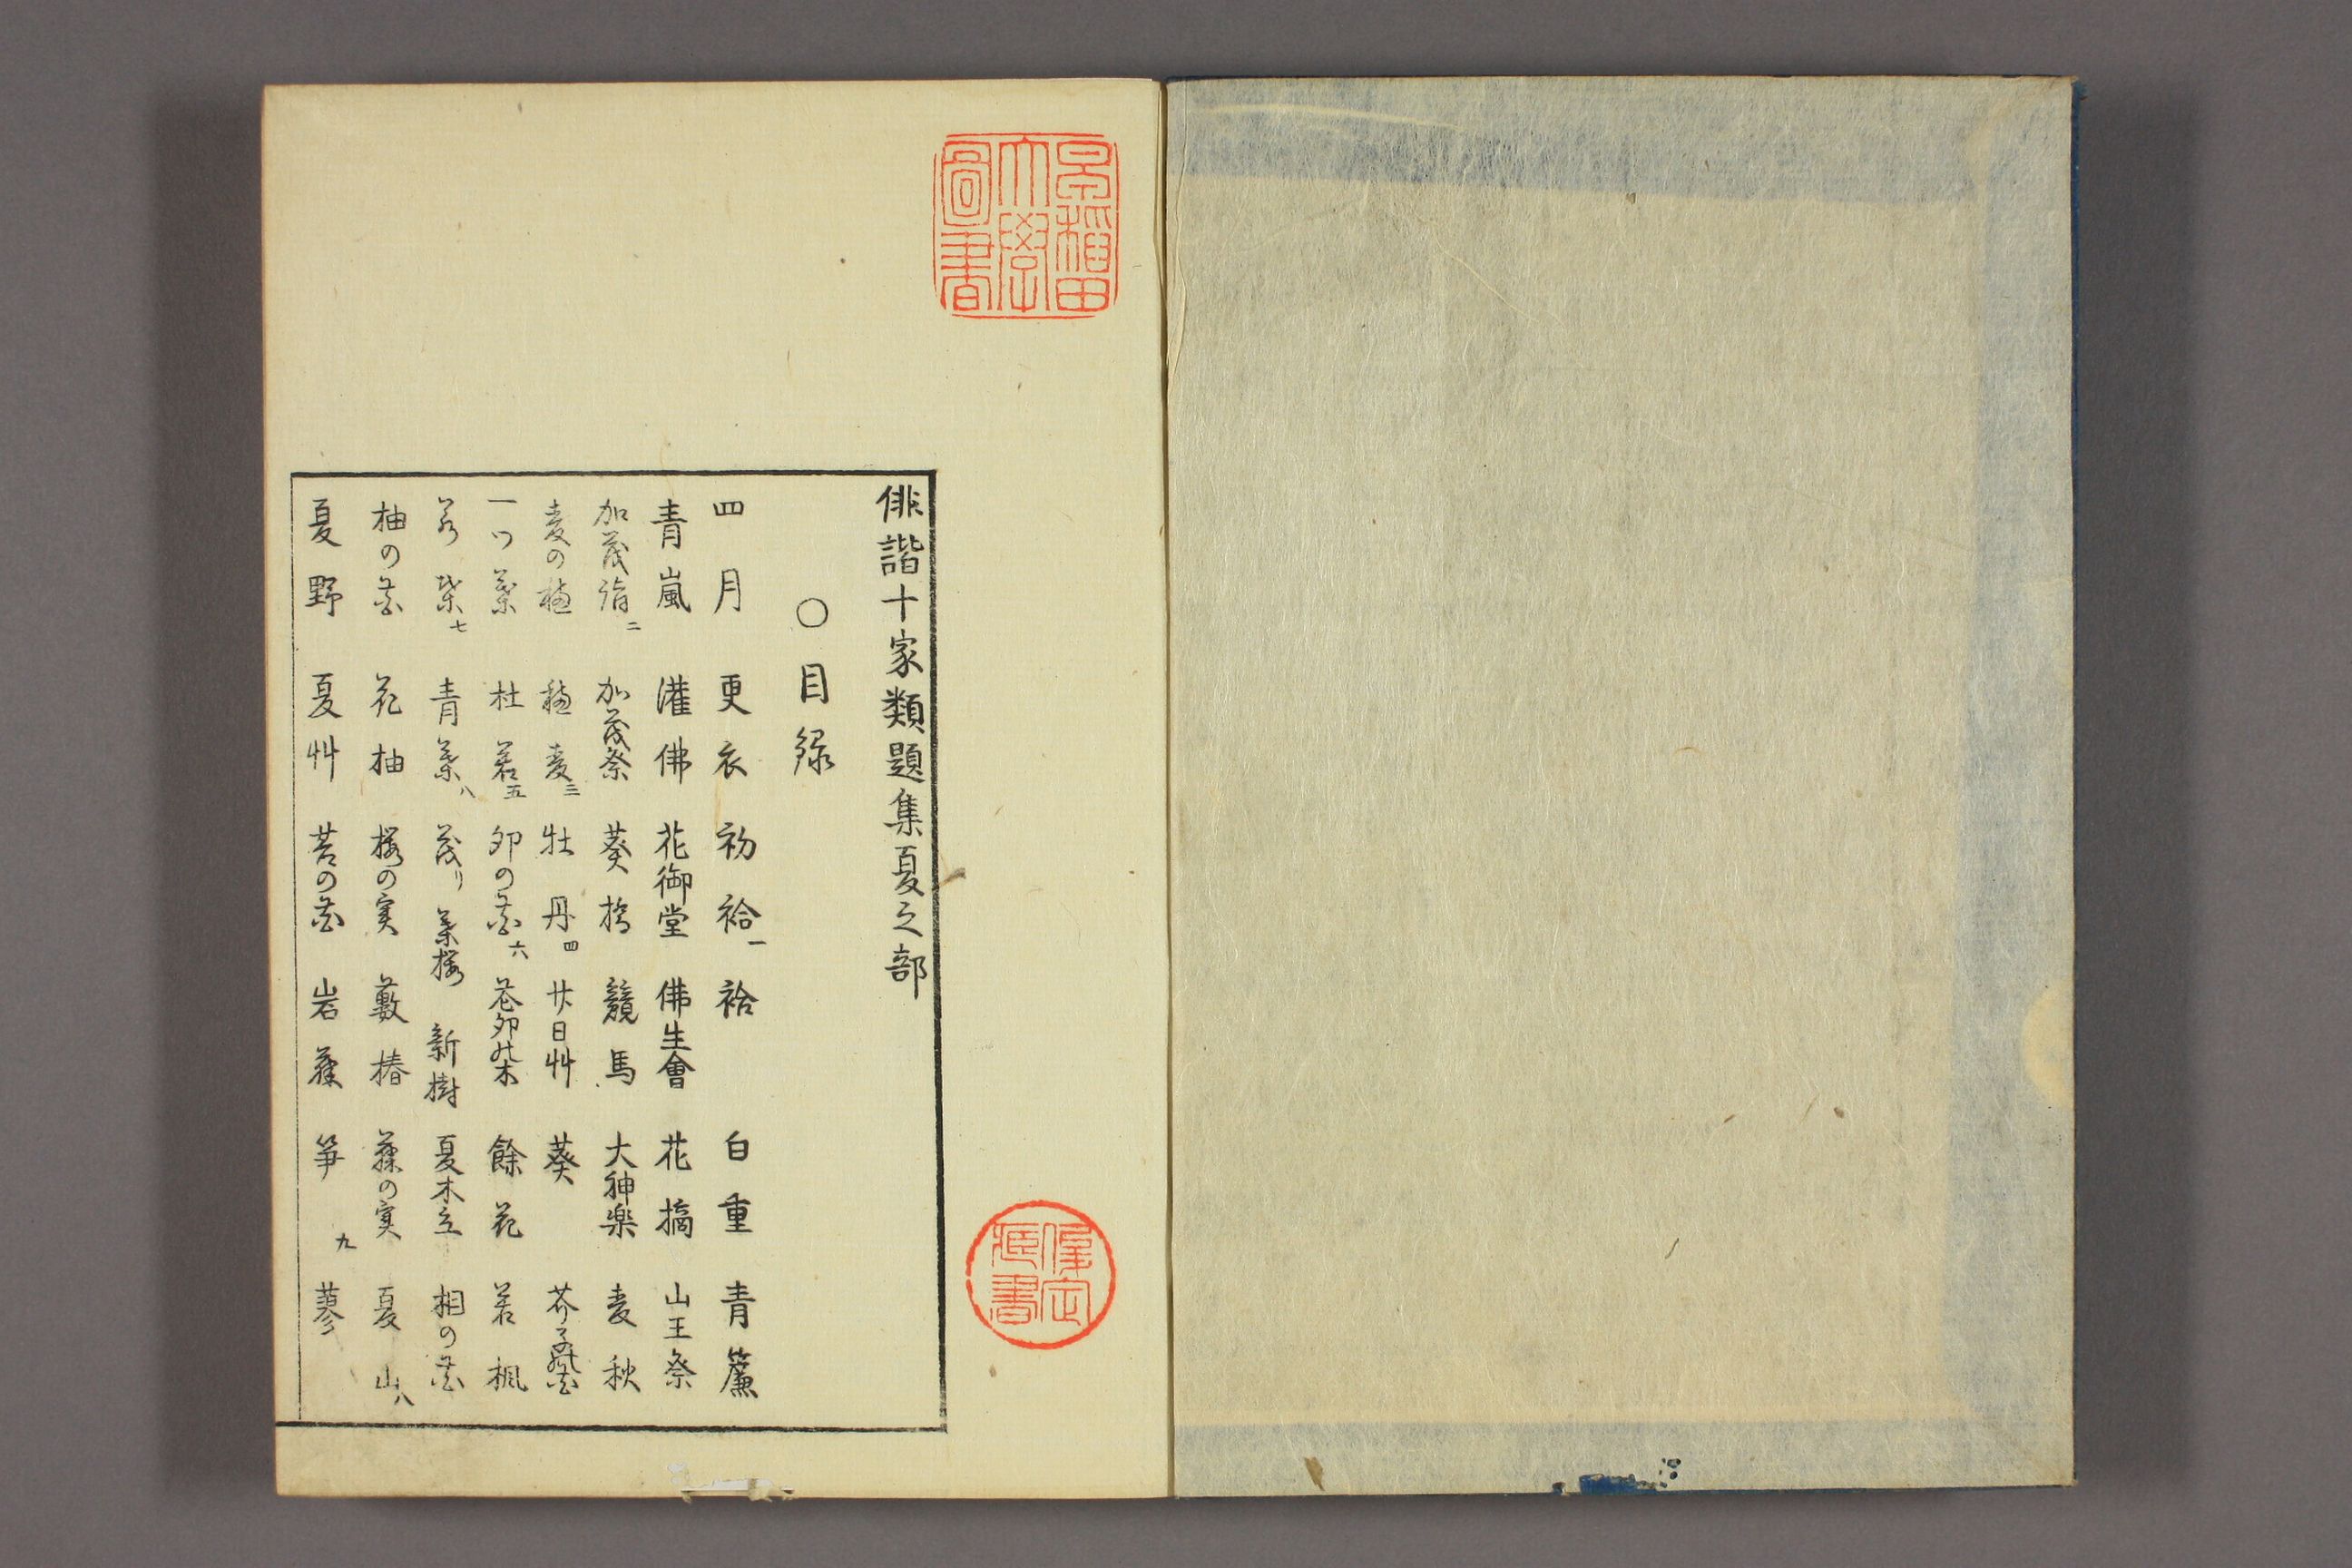 早稲田
大學
圖書
俳諧十家類題集夏之部
〇目録
四月 更衣 初袷一 袷 白重 青簾
青嵐 灌佛 花御堂 佛生會 花摘 山王祭
加茂詣二 加茂祭 葵 競馬 大神楽 麦秋
麦の穂 穂麦三 牡丹四 廿日艸 葵 芥子の花
一ツ葉 杜若五 卯の花六 花卯木 餘花 若楓
若葉七 青葉八 茂り 葉桜 新樹 夏木立 柏の花
柚の花 花柚 桜の実 藪椿 藤の実 夏山八
夏野 夏艸 苔の花 岩藤 笋九 蓼